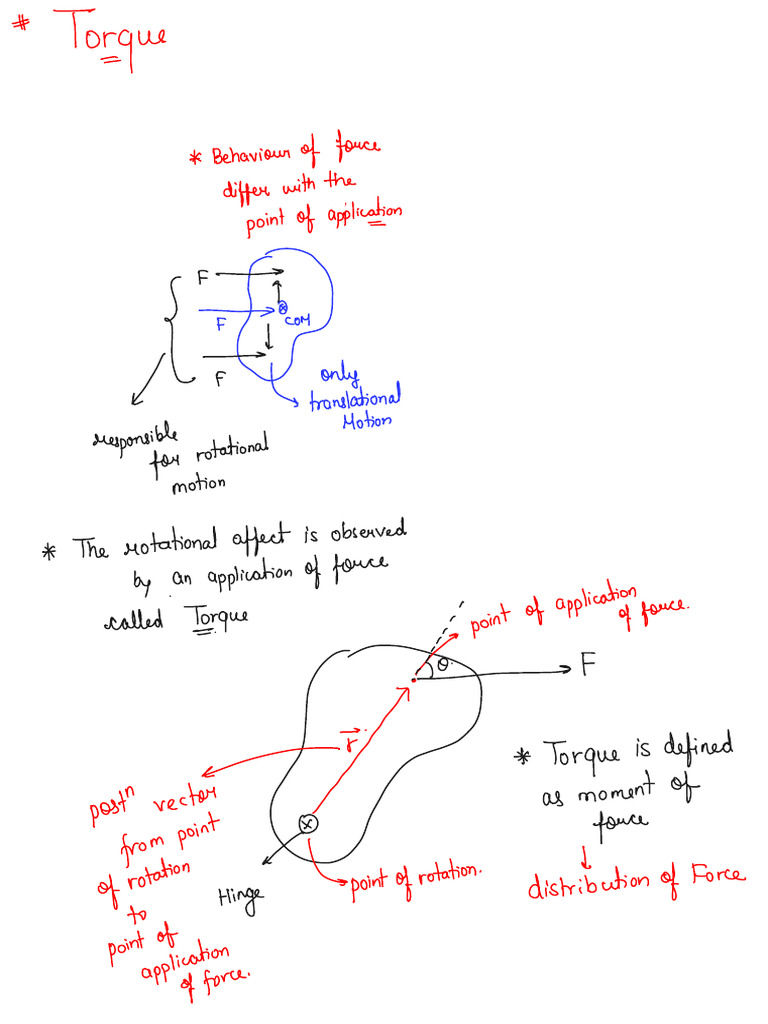 * Torque
* Behaviour of force
differ with the
point of application
F
F
COM
F
only
translational
Motion
responsible
for rotational
motion
* The rotational affect is observed
by an application of force
called Torque
point of application
of force.
θ
F
r
* Torque is defined
as moment of
force
distribution of Force
postn vector
from point
of rotation
to
point of
application
of force.
Hinge
point of rotation.